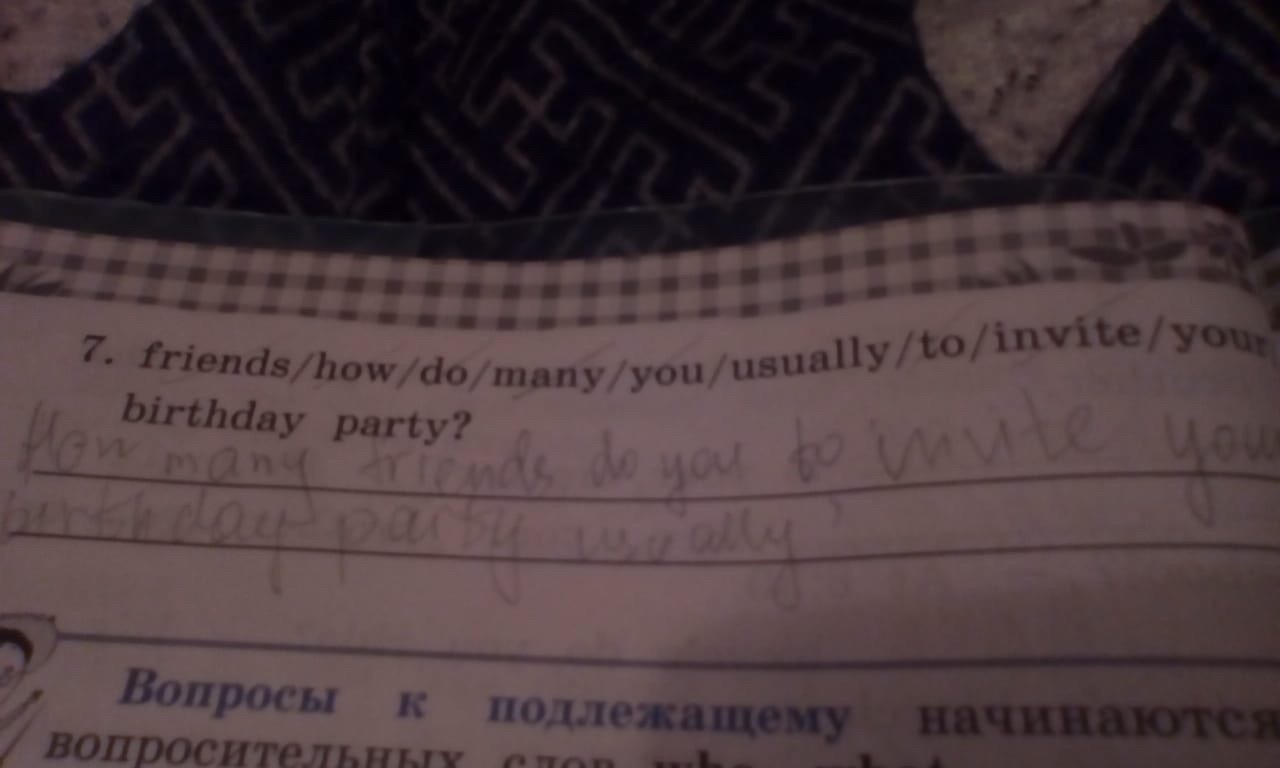 7. friends/how/do/many/you/usually/to/invite/your
birthday party?
How many friends do you to invite you
birthday party usually
Вопросы к подлежащему начинаются
вопросительных слов who, what